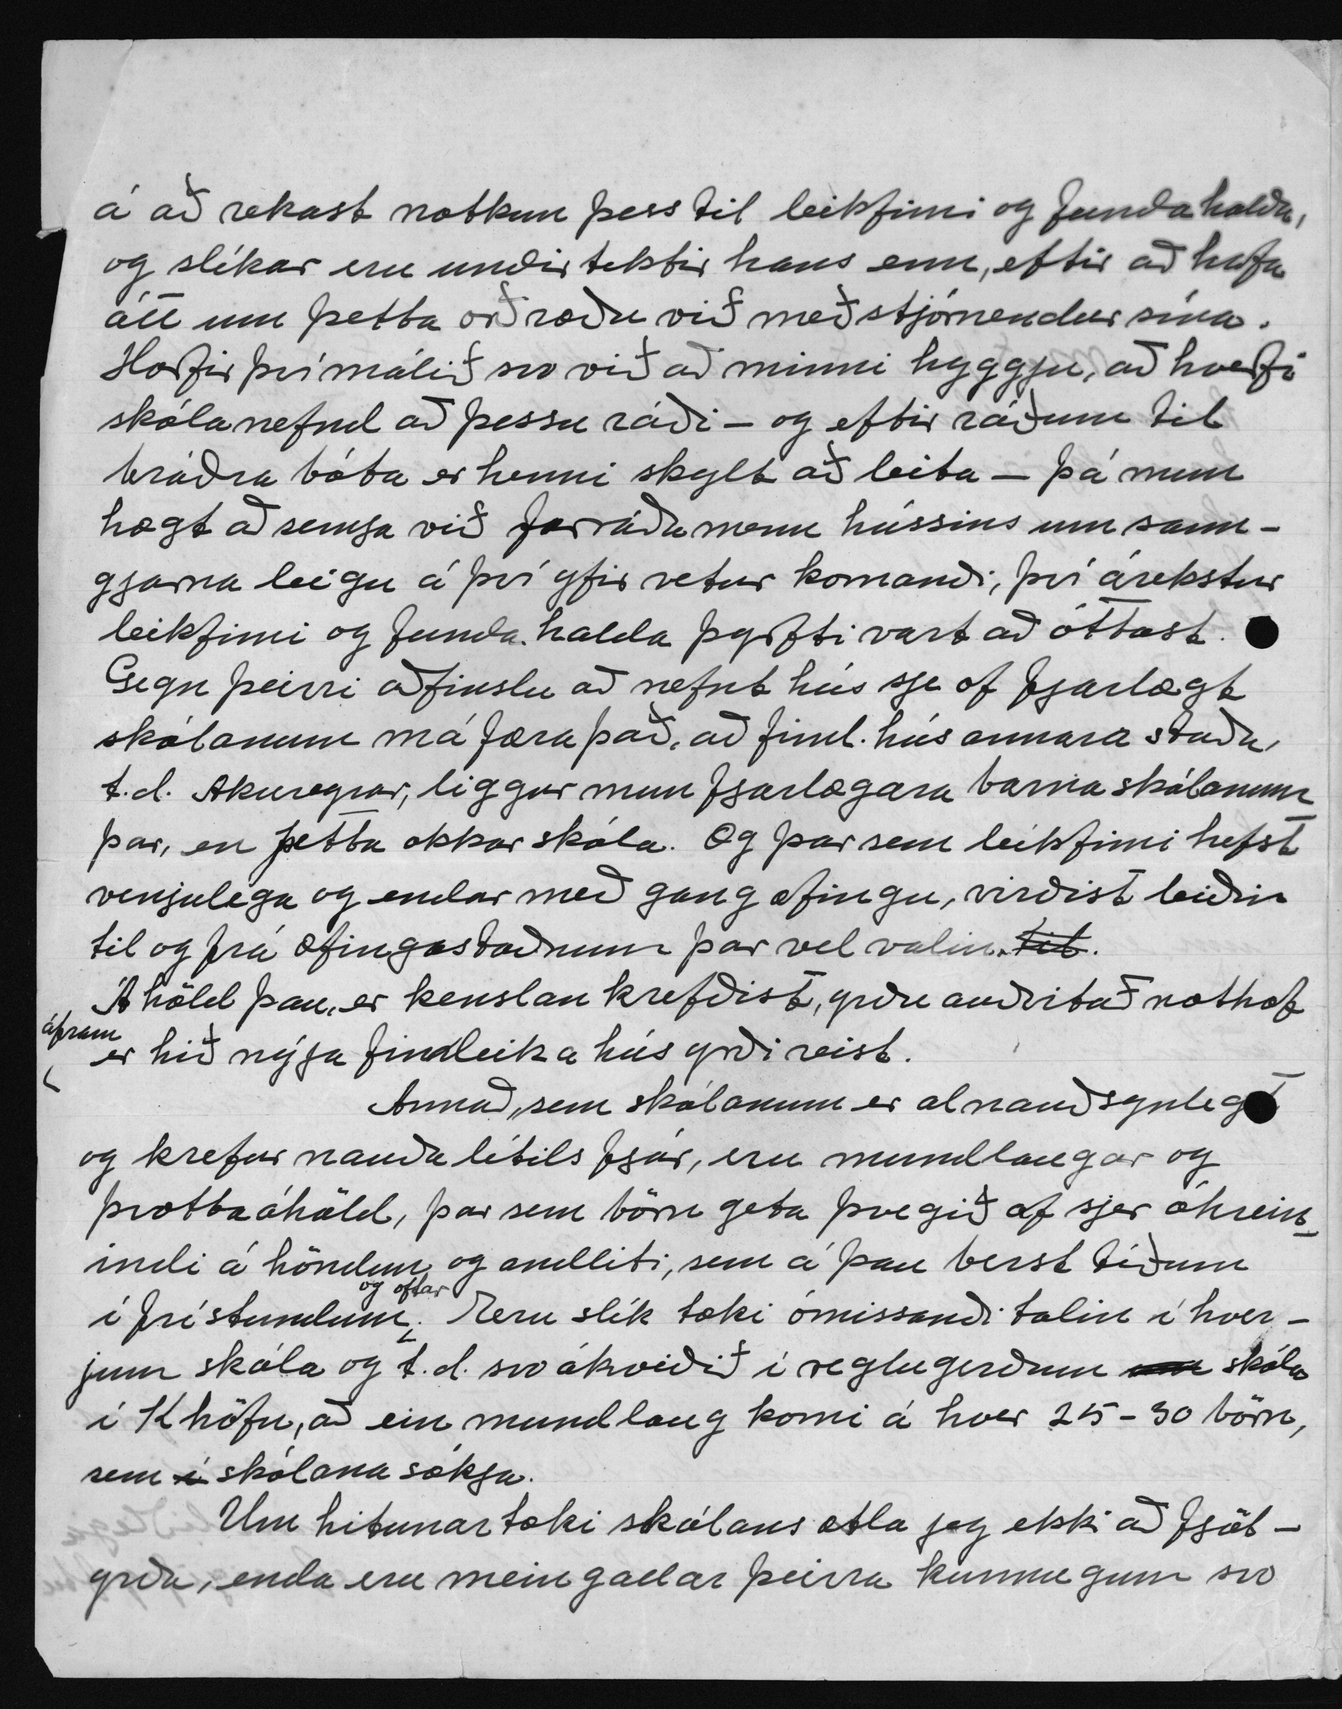 á að rekast notkun þess til leikfimi og fundahalda,
og slíkar eru undirtektir hans enn, eftir að hafa
átt um þetta orðræðu við meðstjórnendur sína.
Horfir því málið svo við að minni hyggju, að hverfi
skólanefnd að þessu ráði - og eftir ráðum til
bráðra bóta er henni skylt að leita - þá mun
hægt að semja við forráðamenn hússins um sann-
gjarna leigu á því yfir vetur komandi, því árekstur
leikfimi og funda halda þyrfti vart að óttast.
Gegn þeirri aðfinslu að nefnt hús sje of fjarlægt
skólanum má færa það, að fiml. hús annara staða,
t.d. Akureyrar, liggur mun fjarlægara barnaskólanum
þar, en þetta okkar skóla. Og þar sem leikfimi hefst
venjulega og endar með gangæfingu, virðist leiðin
til og frá æfingastaðnum þar vel valin. til.
Áhöld þau, er kenslan krefðist, yrðu auðvitað nothæf
áfram
er hið nýja fimleikahús yrði reist.
Annað, sem skólanum er alnauðsynlegt
og krefur nauða lítils fjár, eru mundlaugar og
þvottaáhöld, þar sem börn geta þvegið af sjer óhrein-
indi á höndum og andliti, sem á þau berst tíðum
og oftar
í frístundum. Eru slík tæki ómissandi talin í hver-
jum skóla og t.d. svo ákveðið í reglugerðum um skóla
í Khöfn, að ein mundlaug komi á hver 25-30 börn,
sem í skólana sækja.
Um hitunartæki skólans ætla jeg ekki að fjöl-
yrða, enda eru meingallar þeirra kunnugum svo